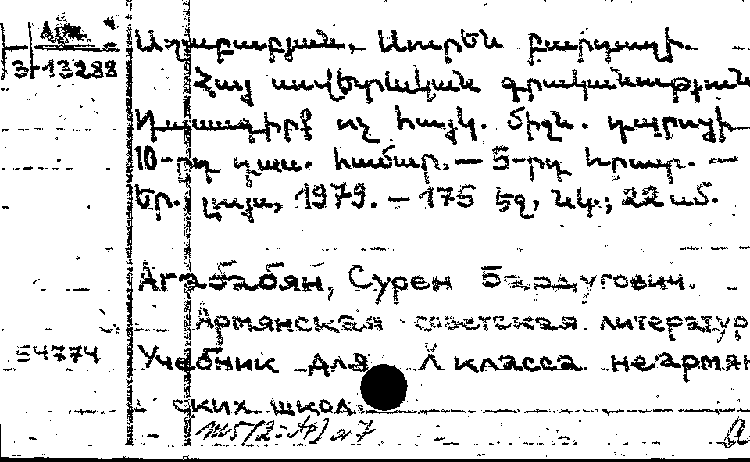 Աղաբաբյան, Սուրեն Բարդուղի.
3-13288
Հայ սովետական գրականության
Դասագիրք ոչ հայկ. միջն. դպրոցի
10-րդ դաս. համար. — 5-րդ հրատ. —
Եր.: Լույս, 1979. — 175 էջ, նկ.; 22 սմ.
Агабабян, Сурен Бардугович.
Армянская советская литератур
54774
Учебник для X класса неармян
ских школ.